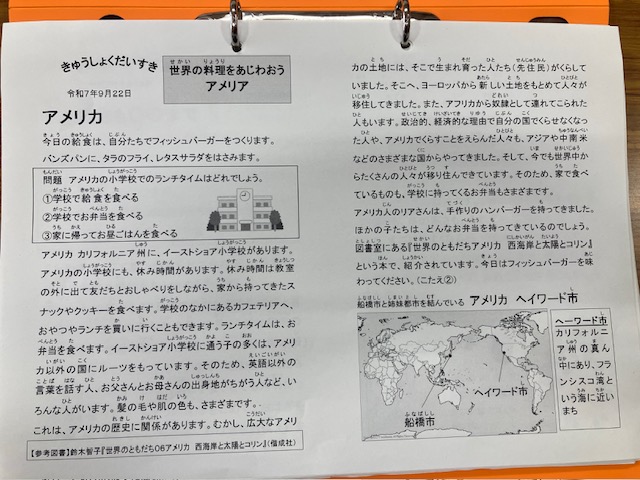 きゅうしょくだいすき
令和7年9月22日
世界の料理をあじわおう
アメリア
アメリカ
今日の給食は、自分たちでフィッシュバーガーをつくります。
バンズパンに、タラのフライ、レタスサラダをはさみます。
問題 アメリカの小学校でのランチタイムはどれでしょう。
①学校で給食を食べる
②学校でお弁当を食べる
③家に帰ってお昼ごはんを食べる
アメリカ カリフォルニア州に、イーストショア小学校があります。
アメリカの小学校にも、休み時間があります。休み時間は教室
の外に出て友だちとおしゃべりをしながら、家から持ってきたス
ナックやクッキーを食べます。学校のなかにあるカフェテリアへ、
おやつやランチを買いに行くこともできます。ランチタイムは、お
弁当を食べます。イーストショア小学校に通う子の多くは、アメリ
カ以外の国にルーツをもっています。そのため、英語以外の
言葉を話す人、お父さんとお母さんの出身地がちがう人など、い
ろんな人がいます。髪の毛や肌の色も、さまざまです。
これは、アメリカの歴史に関係があります。むかし、広大なアメリ
【参考図書】鈴木智子『世界のともだち06アメリカ 西海岸と太陽とコリン』(偕成社)
カの土地には、そこで生まれ育った人たち(先住民)がくらして
いました。そこへ、ヨーロッパから新しい土地をもとめて人々が
移住してきました。また、アフリカから奴隷として連れてこられた
人もいます。政治的、経済的な理由で自分の国でくらせなくなっ
た人や、アメリカでくらすことをえらんだ人々も、アジアや中南米
などのさまざまな国からやってきました。そして、今でも世界中か
らたくさんの人々が移り住んできています。そのため、家で食べ
ているものも、学校に持ってくるお弁当もさまざまです。
アメリカ人のリアさんは、手作りのハンバーガーを持ってきました。
ほかの子たちは、どんなお弁当を持ってきているのでしょう。
図書室にある『世界のともだちアメリカ 西海岸と太陽とコリン』
という本で、紹介されています。今日はフィッシュバーガーを味
わってください。(こたえ②)
船橋市と姉妹都市を結んでいる アメリカ ヘイワード市
ヘイワード市
船橋市
ヘーワード市
カリフォルニ
ア州の真ん
中にあり、フラ
ンシスコ湾と
いう海に近い
まち